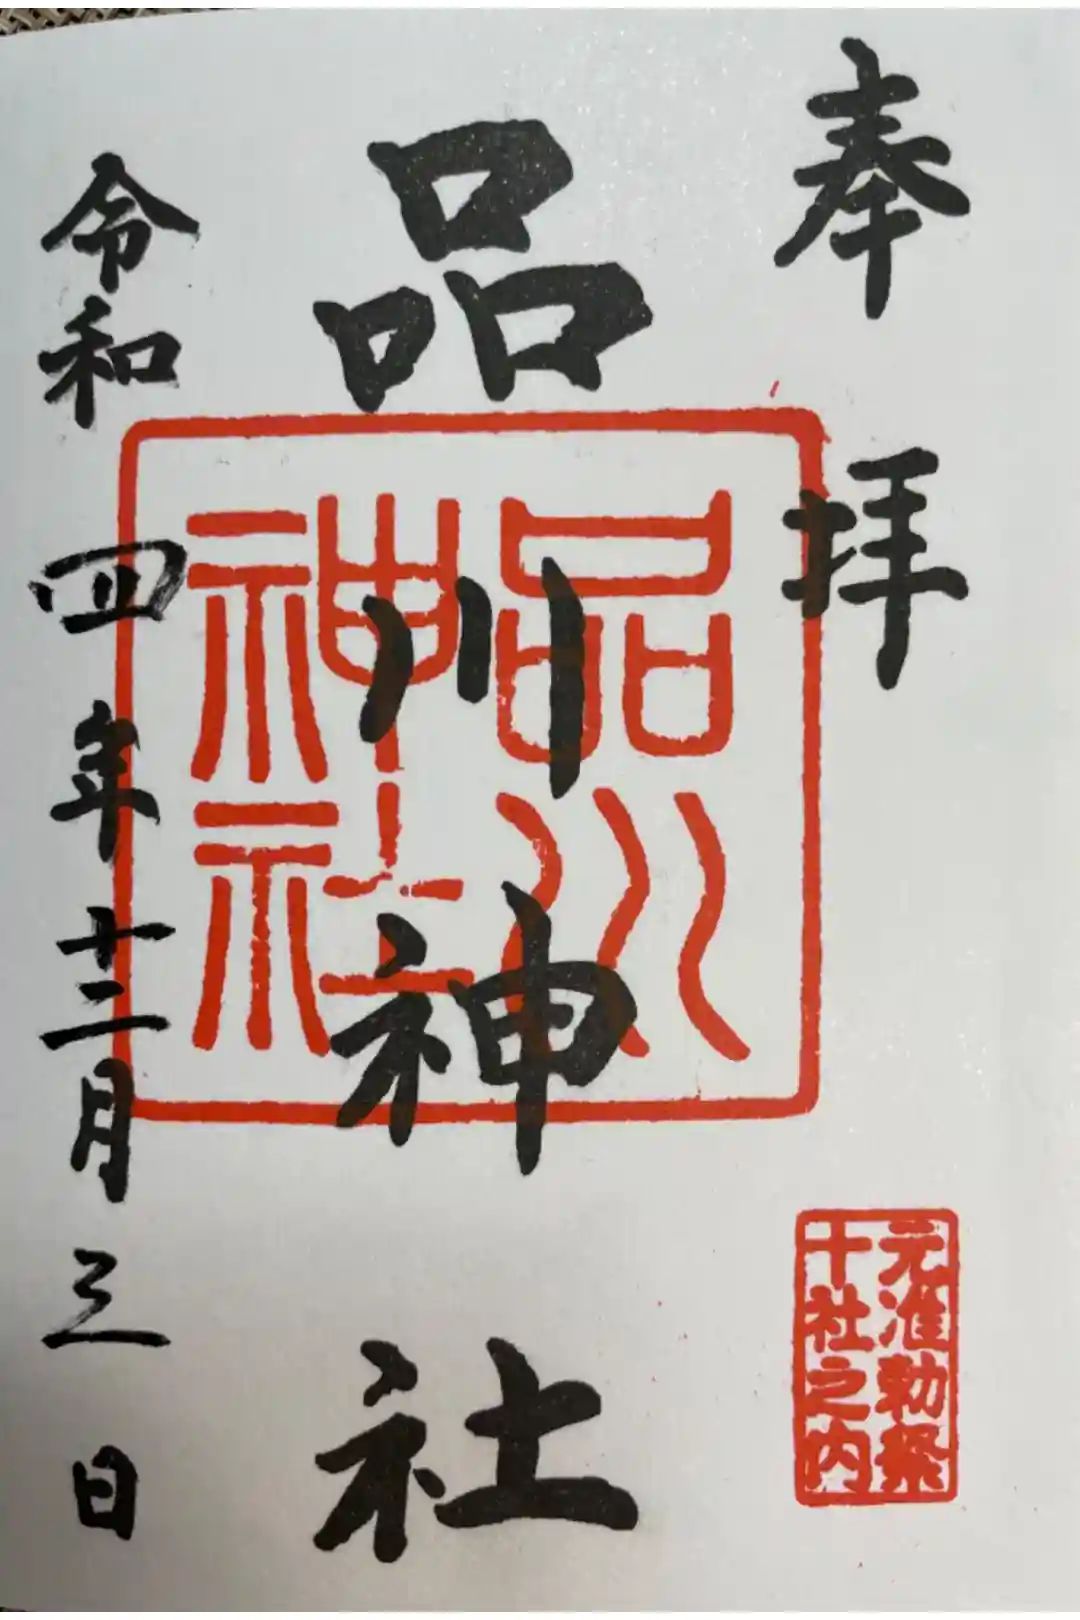 奉拝
元准勅祭
十社之内
品川神社
品川
神社
令和四年十二月三日